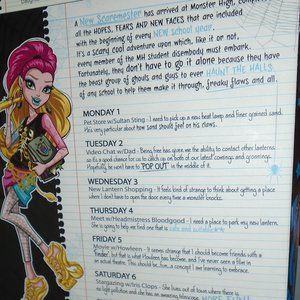 A New Scaremester has arrived at Monster High, complete
all the HOPES, FEARS AND NEW FACES that are included
with the beginning of every NEW school year.
It's a scary cool adventure upon which, like it or not,
every member of the MH student disembody must embark.
Fortunately, they don't have to go it alone because they have
the beast group of ghouls and guys to ever HAUNT THE HALLS
of any school to help them make it through, freaky flaws and all.
MONDAY 1
Pet Store w/Sultan Sting - I need to pick up a new heat lamp and finer grained sand.
He's very particular about how sand should feel on his claws.
TUESDAY 2
Video Chat w/Dad - Being genie has given me the ability to contact other lanterns
so it's a good chance for us to catch up on both of our latest comings and goings.
Hopefully, he won't have to "POP OUT" in the middle of it.
WEDNESDAY 3
New Lantern Shopping - It feels kind of strange to think about getting a place
where I don't have to open the door every time a wonderful knocks.
THURSDAY 4
Meet w/Headmistress Bloodgood - I need a place to park my new lantern.
She is going to help me find one that is safe and suitable
FRIDAY 5
Movie w/Howleen - It seems strange that I should become friends with a
"finder", but that is what Howleen has become, and I've never seen a film in
an actual theatre. This should be a concept I am learning to embrace.
SATURDAY 6
Stargazing w/Iris Clops - She lives out of town where there is
no light pollution and she has an